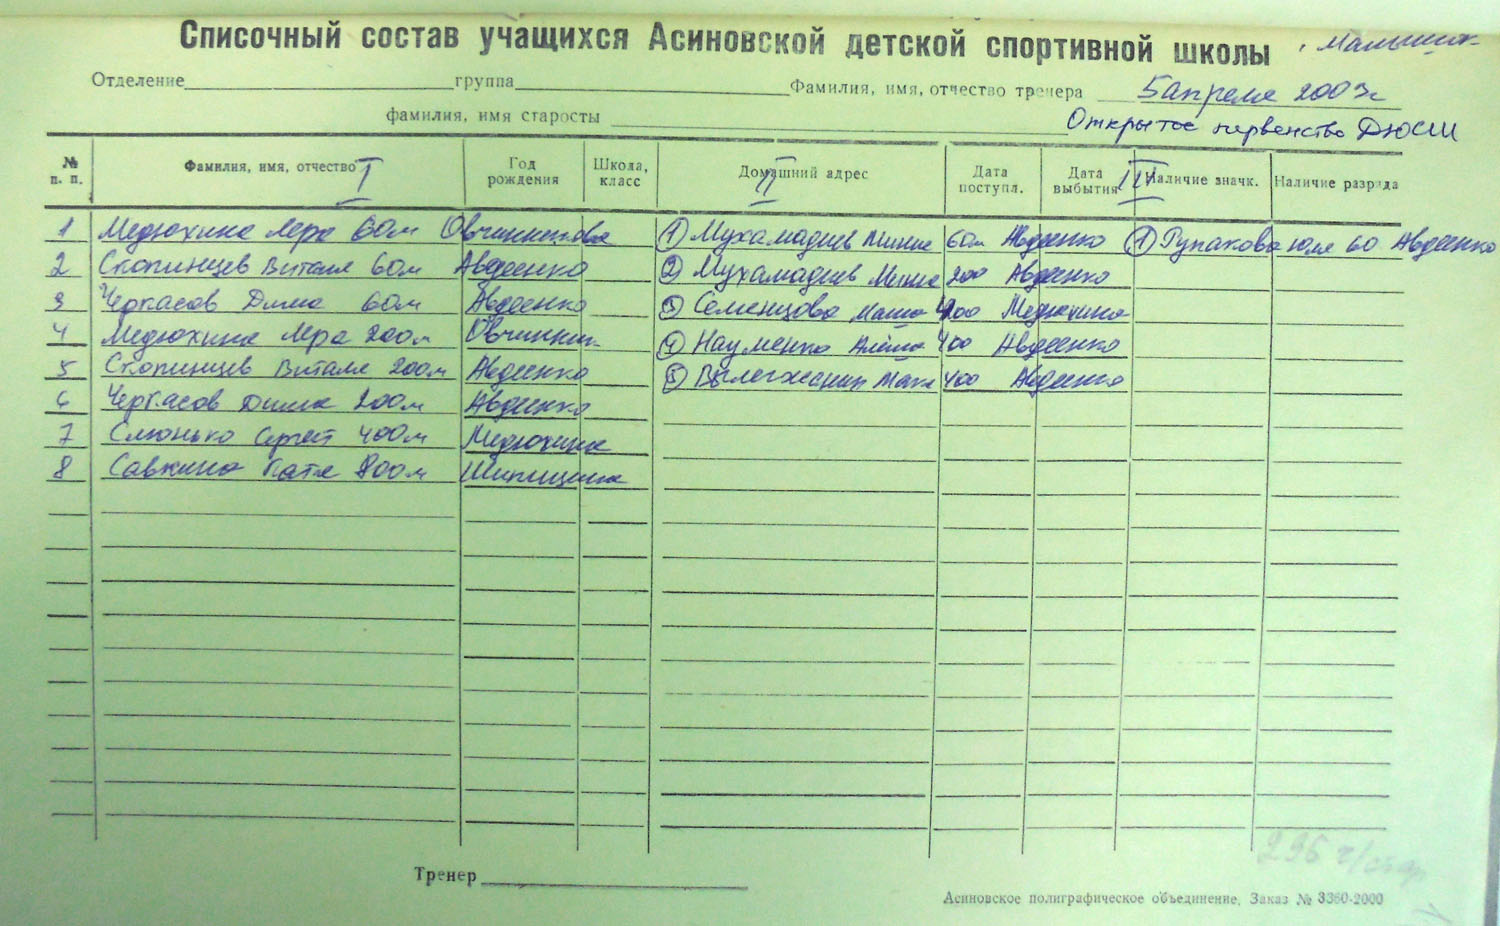 Списочный состав учащихся Асиновской детской спортивной школы
Отделение группа Фамилия, имя, отчество тренера 5 апреля 2003г
фамилия, имя старосты Открытое первенство ДЮСШ
№ п. п. Фамилия, имя, отчество I Год рождения Школа, класс Домашний адрес II Дата поступл. Дата выбытия III Наличие значк. Наличие разряда
1 Медюхина Лера 60м Овчинникова ① Мухамадиев Миша 60м Авдеенко ① Рупакова Юля 60 Авдеенко
2 Скопинцев Виталя 60м Авдеенко ② Мухамадиев Миша 200 Авдеенко
3 Черкасов Дима 60м Авдеенко ③ Семенцова Маша 400 Медюхина
4 Медюхина Лера 200м Овчинник ④ Науменко Алёша 400 Авдеенко
5 Скопинцев Виталя 200м Авдеенко ⑤ Вылегжанин Макс 400 Авдеенко
6 Черкасов Дима 200м Авдеенко
7 Слюнько Сергей 400м Медюхина
8 Савкина Катя 800м Шипицина
Тренер
Асиновское полиграфическое объединение, Заказ № 3360-2000